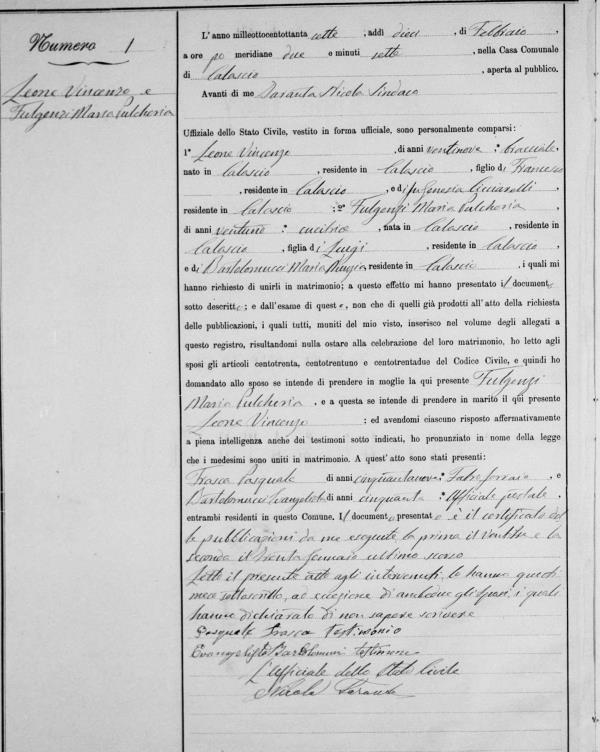 Numero 1
Leone Vincenzo e
Fulgenzi Maria Pulcheria
L'anno milleottocentottanta sette, addì dieci, di Febbraio,
a ore po meridiane due e minuti sette, nella Casa Comunale
di Calascio, aperta al pubblico.
Avanti di me Taranta Nicola Sindaco
Uffiziale dello Stato Civile, vestito in forma uffiziale, sono personalmente comparsi:
1° Leone Vincenzo, di anni ventinove: bracciale,
nato in Calascio, residente in Calascio, figlio di Francesco
, residente in Calascio, e di fu
residente in Calascio; 2° Fulgenzi Maria Pulcheria,
di anni ventuno: cucitrice, nata in Calascio, residente in
Calascio, figlia di Luigi, residente in Calascio,
e di Bartolomucci Maria, residente in Calascio, i quali mi
hanno richiesto di unirli in matrimonio; a questo effetto mi hanno presentato il document
sotto descritto; e dall'esame di questo, non che di quelli già prodotti all'atto della richiesta
delle pubblicazioni, i quali tutti, muniti del mio visto, inserisco nel volume degli allegati a
questo registro, risultandomi nulla ostare alla celebrazione del loro matrimonio, ho letto agli
sposi gli articoli centotrenta, centotrentuno e centotrentadue del Codice Civile, e quindi ho
domandato allo sposo se intende di prendere in moglie la qui presente Fulgenzi
Maria Pulcheria, e a questa se intende di prendere in marito il qui presente
Leone Vincenzo; ed avendomi ciascuno risposto affermativamente
a piena intelligenza anche dei testimoni sotto indicati, ho pronunziato in nome della legge
che i medesimi sono uniti in matrimonio. A quest'atto sono stati presenti:
Frasca Pasquale di anni cinquantanove: Fabroferraio, e
Bartolomucci Evangelista di anni cinquanta: Ufficiale postale,
entrambi residenti in questo Comune. Il documento presentato è il certificato del
le pubblicazioni da me eseguite la prima il ventitre e la
seconda il trenta Gennaio ultimo scorso
Letto il presente atto agli intervenuti, lo hanno questi
meco sottoscritto, ad eccezione di ambedue gli sposi, i quali
hanno dichiarato di non sapere scrivere
Pasquale Frasca testimonio
Evangelista Bartolomucci testimone
L'Ufficiale dello Stato Civile
Nicola Taranta